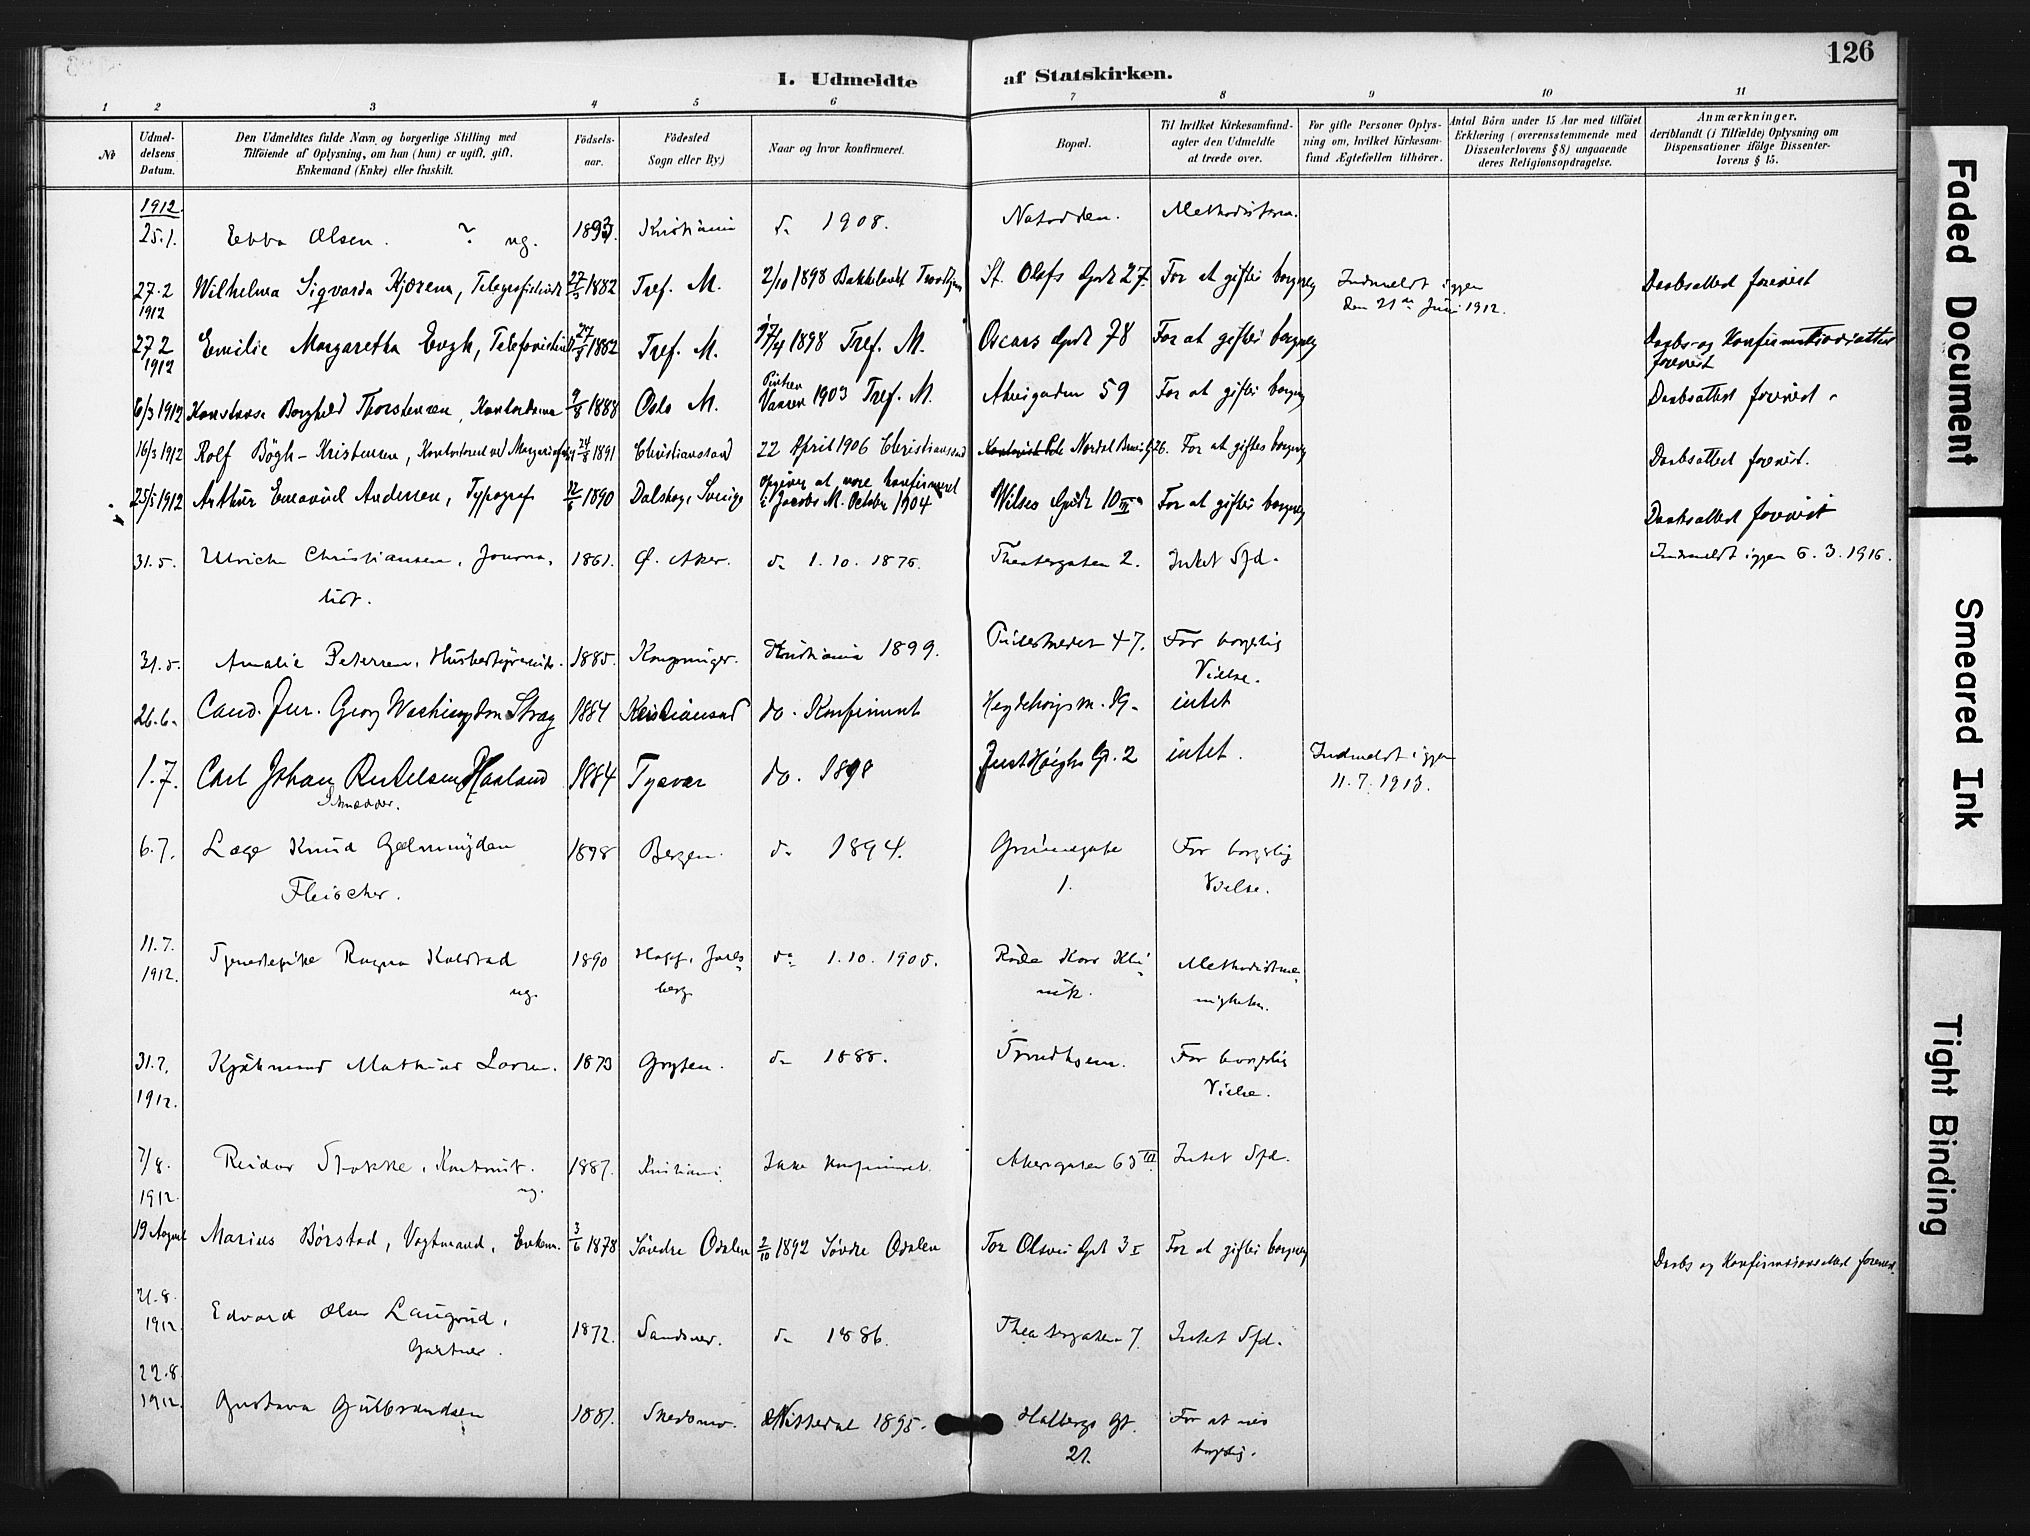 126
I. Udmeldte af Statskirken.
1 2 3 4 5 6 7 8 9 10 11
No
Udmel-
delsens
Datum.
Den Udmeldtes fulde Navn og borgerlige Stilling med
Tilføiende af Oplysning, om han (hun) er ugift, gift,
Enkemand (Enke) eller fraskilt.
Fødsels-
aar.
Fødested
Sogn eller By)
Naar og hvor konfirmeret.
Bopæl.
Til hvilket Kirkesamfund-
agter den Udmeldte
at træde over.
For gifte Personer Oplys-
ning om, hvilket Kirkesam-
fund Ægtefællen tilhører.
Antal Børn under 15 Aar med tilføiet
Erklæring (overensstemmende med
Dissenterlovens § 8) angaaende
deres Religionsopdragelse.
Anmærkninger,
deriblandt (i Tilfælde) Oplysning om
Dispensationer ifølge Dissenter-
lovens § 15.
1912.
25.1. Ebba Olsen. ? ug. Kristiania do 1908. Notodden.
27.2 1912 Wilhelma Sigvarda 27/5 1882 Tref. M. 2/10 1898 St. Olafs Gade 27. For at giftes borgerlig
Indmeldt igjen
den 21de Juni 1912.
Daabsattest forevist
27 2 1912 Emilie Margaretha 1882 Tref. M. 1898 Tref. M. Oscars Gade 78 For at giftes borgerlig
Daabs- og Konfirmationsattest
forevist
6/3 1912 Konstanse Borghild Thorstensen, Kontordame 1888 Oslo M. 1903 Tref. M. Akersgaden 59 For at giftes borgerlig Daabsattest forevist
16/3 1912 Rolf Bøgh-Kristensen, 24/8 1891 Christianssand 22 April 1906 Christianssand 26. For at giftes borgerlig Daabsattest forevist.
25/5 1912 Arthur Emanuel Andersen, Typograf 1890 Dalskog, Sverige
opgiver at være konfirmeret
i Jacobs M. October 1904
Nilses Gade 10 III For at giftes borgerlig Daabsattest forevist
31.5. Ulrich Christiansen, Journa-
list.
1861. Ø. Aker. do 1.10. 1876. Theatergaten 2. Intet Sfd. Indmeldt igjen 6.3.1916.
31.5. Amalie Petersen, Husbestyrerinde. 1885. Kongsvinger. Kristiania 1899. Pilestrædet 47. For borgerlig
Vielse.
26.6. Cand. Jur. Georg Washington Stray 1884 Kristiansand do. Konfirmeret intet
1.7. Carl Johan Haaland
Skrædder.
1884 Tysvær do. 1898 Just Høighs G. 2 intet. Indmeldt igjen
11.7.1913.
6.7. Læge Knud Gelmuyden
Fleischer.
1898 Bergen. do 1894. Grünersgate
1.
For borgerlig
Vielse.
11.7.
1912.
Tjenestepike Ragna Kolstad
ug.
1890 Hoff, Jarls-
berg do 1.10.1905. Røde Kors Kli-
nik.
Methodistme-
nigheten.
31.7.
1912.
Mathias Larsen. 1873 Gryten. do 1888. Trondhjem. For borgerlig
Vielse.
7/8.
1912.
Reidar Stokke, Kontorist.
ug.
1887. Kristiania Ikke konfirmeret. Akersgaten 65 III Intet Sfd.
19 August Marius Børstad, Vogtmand, Enkem. 3/6 1878 Søndre Odalen 2/10 1892 Søndre Odalen Tor Olsens Gade 3 I For at giftes borgerlig Daabs og Konfirmationsattest forevist.
21.8.
1912.
Edvard Olsen Laugrud,
Gartner.
1872. Sandsvær. do 1886. Theatergaten 7. Intet Sfd.
22.8.
1912.
Gustava Gulbrandsen 1881. Skedsmo. Nittedal 1895. Holbergs Gt.
21.
For at vies
borgerlig.
Faded Document
Smeared Ink
Tight Binding